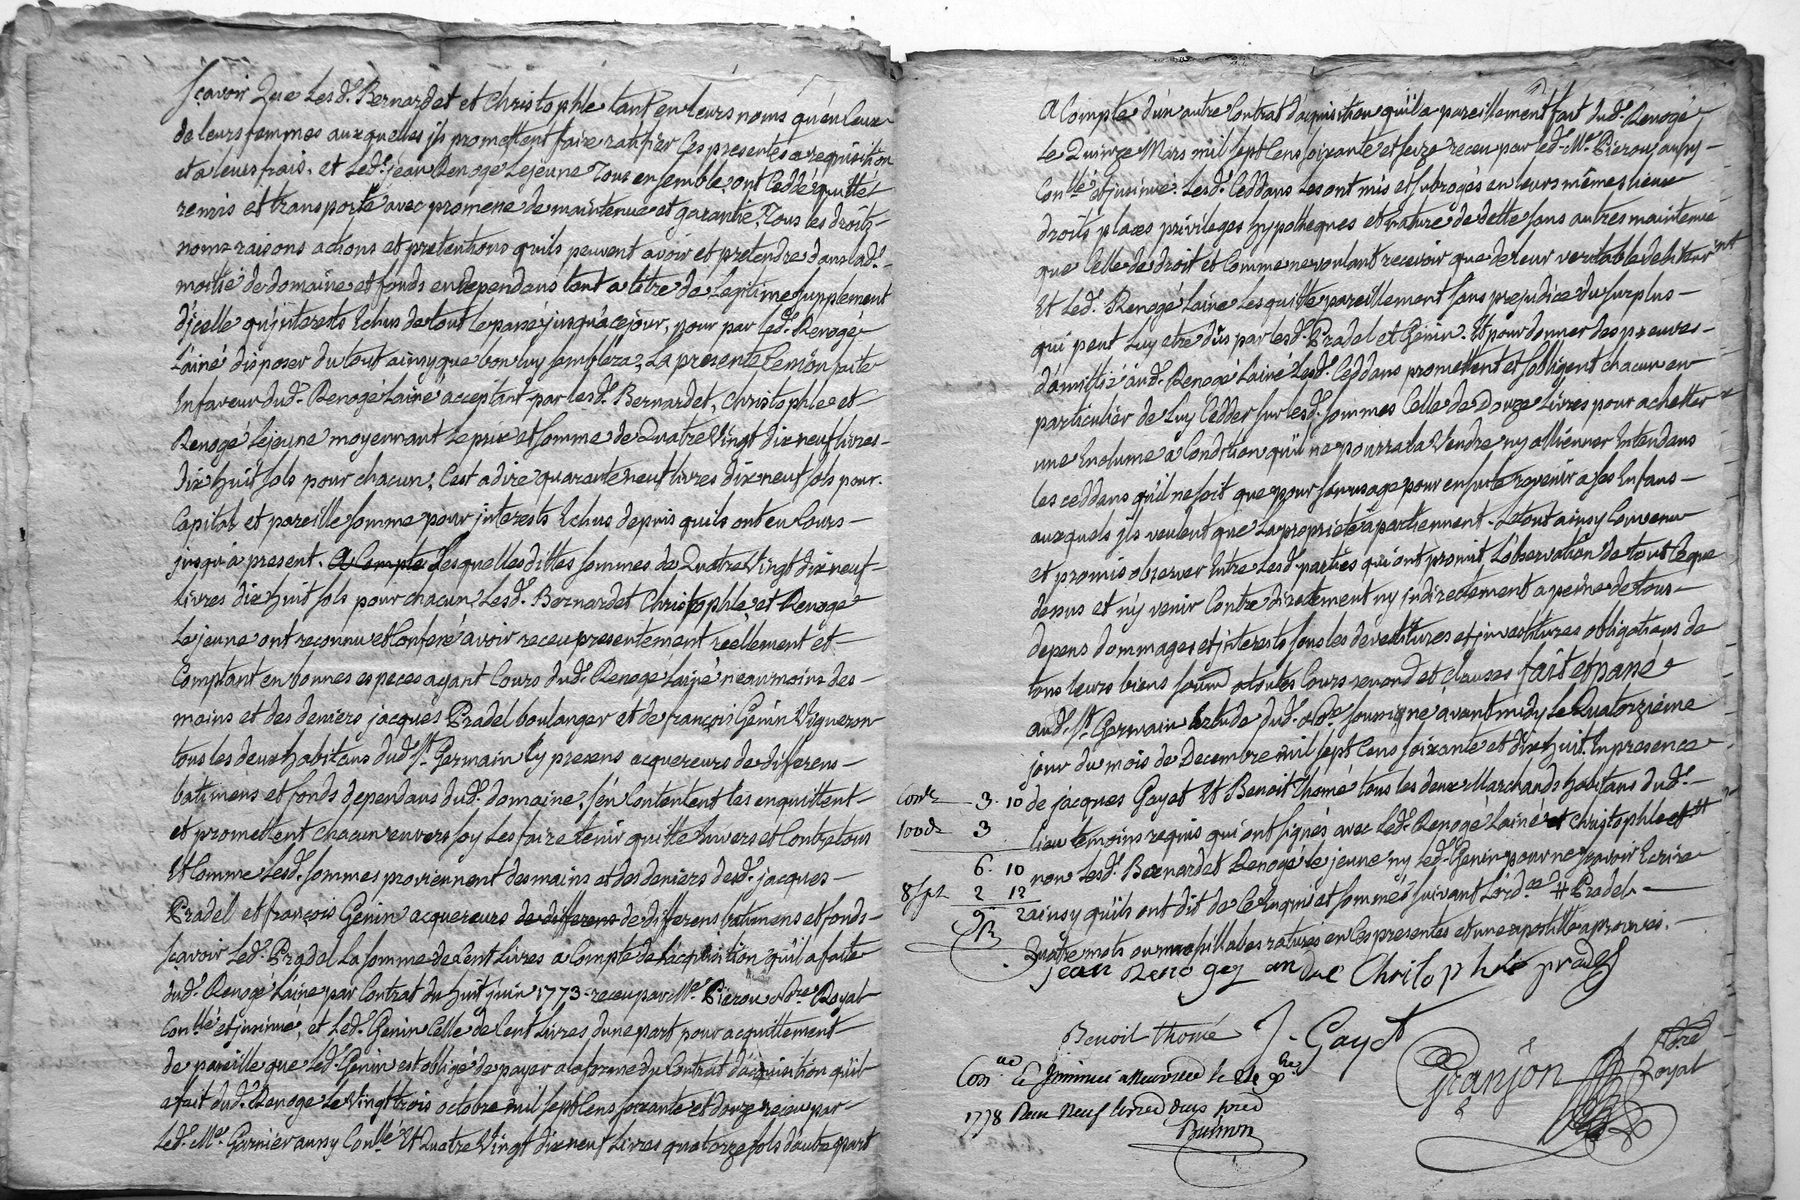 Scavoir Que Lesd. Bernardet et Christophle tant en leurs noms qu'en Ceux
de leurs femmes auxquelles jls promettent faire ratifier Ces presentes a requisition
et a leurs frais, et Led. jean Renogé Lejeune Tous ensemble, ont Ceddé quitté
remis et transporté avec promene de maintenue et garantie, Tous les droits
noms raisons actions et pretentions quils peuvent avoir et pretendre dans lad.
moitié de domaine et fonds en dependans tant a titre de Legitime supplement
d'jcelle qu'jnterests Echus de tout le passé jusqu'a ce jour, pour par led. Renogé
L'ainé disposer du tout ainsy que bon luy semblera, La presente faite
En faveur dud. Renogé Lainé acceptant par lesd. Bernardet, Christophle et
Renogé Lejeune moyennant Le prix et somme de Quatre Vingt dix neuf livres
dix huit sols pour chacun, C'est a dire quarante neuf livres dix neuf sols pour
Capital et pareille somme pour jnterests Echus depuis quils ont eu Cours
jusqu'a present. A Compte Lesquelles dittes sommes de Quatre Vingt dix neuf
livres dix huit sols pour chacun, Lesd. Bernardet Christophle et Renogé
Le jeune ont reconnu et Confessé avoir receu presentement reellement et
Comptant en bonnes especes ayant Cours dud. Renogé Lainé neanmoins des
mains et des deniers jacques Pradel boulanger et de françois Genin Vigneron
tous les deux habitans dud. St. Germain Cy presens acquereurs de differens
batimens et fonds dependans dud. domaine, s'en Contentent les en quittent
et promettent chacun envers soy Les faire tenir quitte Envers et Contre tous
Et Comme Lesd. sommes proviennent des mains et des deniers desd. jacques
Pradel et françois Genin acquereurs de differens de differens batimens et fonds
scavoir Led. Pradel La somme de Cent Livres a Compte de L'acquisition qu'il a faite
dud. Renogé Lainé par Contrat du huit juin 1773 receu par Me. Pierou Nore. Royal
Conllé et jnsinué, et Led. Genin Celle de Cent Livres d'une part pour acquittement
de pareille que led. Genin est obligé de payer a la forme du Contrat d'acquisition qu'il
a fait dud. Renogé Le Vingt trois octobre mil sept Cens soixante et douze receu par
led. Me. Garnier aussy Conllé Et Quatre Vingt dix neuf Livres quatorze sols d'autre part
A Compte d'un autre Contrat d'acquisition qu'il a pareillement fait dud. Renogé
Le Quinze Mars mil sept Cens soixante et seize receu par led. Me. Pierou aussy
Conllé et jnsinué. Lesd. Ceddans Les ont mis et subrogés en leurs mêmes lieux
droits places privileges hypotheques et nature de dette sans autres maintenue
que Celle de droit et Comme ne voulant recevoir que de leur veritable debiteur
Et Led. Renogé Lainé Les quitte pareillement sans prejudice du surplus
qui peut Luy etre dûs par lesd. Pradel et Genin. Et pour donner des preuves
d'amittié aud. Renogé Lainé Lesd. Ceddans promettent et s'obligent chacun en
particulier de Luy Cedder sur lesd. sommes Celle de Douze Livres pour achetter
une Enclume a Condition qu'il ne pourra la Vendre ny allienner Entendans
les ceddans qu'il ne soit que pour son usage pour ensuite revenir a ses Enfans
auxquels jls veulent que La proprieté appartiennent. Le tout ainsy Convenu
et promis observer Entre Lesd. parties qui ont promit L'observation de tout Ce que
dessus et n'y venir Contre directement ny jndirectement a peine de tous
depens dommages et jnterests sous les devestitures et jnvestitures obligations de
tous leurs biens a toutes Cours renond et clauses fait et passé
aud. St. Germain Etude dud. Nore. soussigné avant midy Le Quatorzieme
jour du mois de Decembre mil sept Cens soixante et dix huit. En presence
Conle 3. 10 de jacques Gayet Et Benoit Thomé tous les deux Marchands habitans dud.
100de 3 lieu temoins requis qui ont signés avec Led. Renogé Lainé et Christophle et #
6. 10 non Lesd. Bernardet Renogé le jeune ny led. Genin pour ne scavoir Ecrire
8s.pl 2 12 ainsy qu'ils ont dit de Ce Enquis et sommés suivant L'ordce # Pradel
9 2 Quatre mots ou sillabes ratures en Ces presentes et une apostille aprouvés.
jean Renogey Christophle pradel
Benoit thomé J. Gayet
Granjon Nore Royal
Con. Et jnsinué le
1778 Receu Neuf livres deux sols